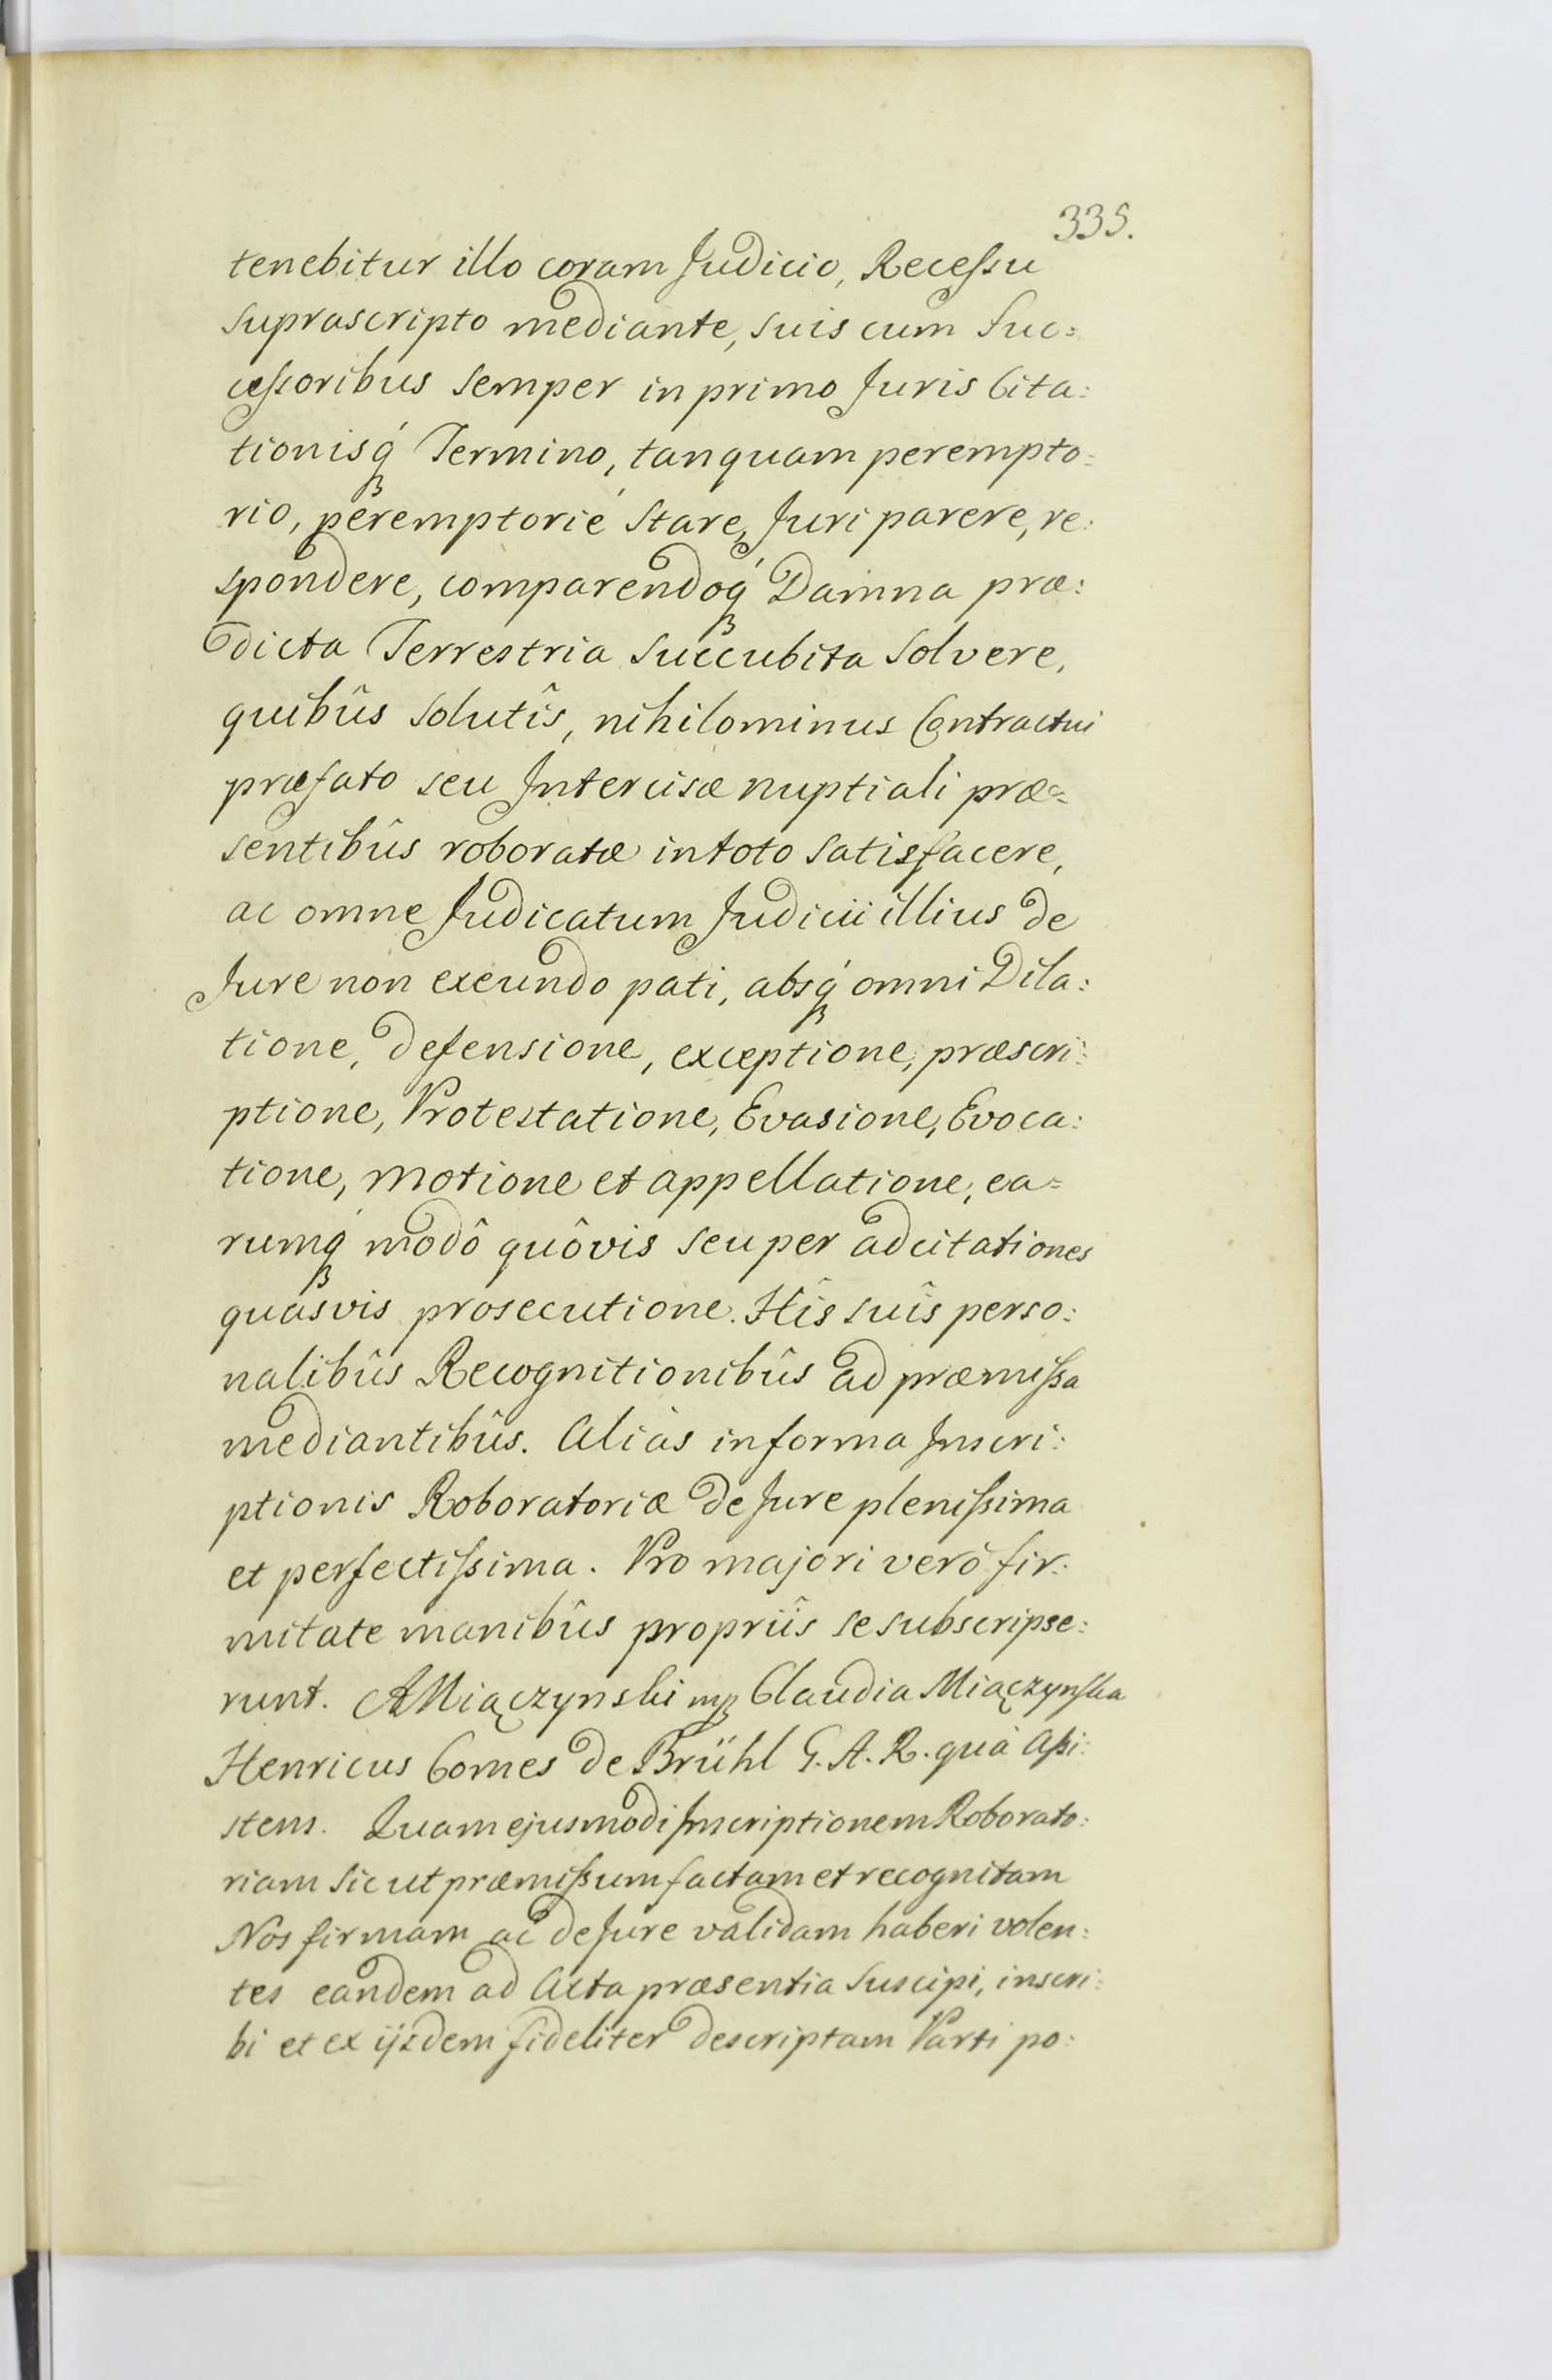 335.
tenebitur illo coram Judicio, Recessu
suprascripto mediante, suis cum Suc=
cessoribus semper in primo Juris Cita:
tionisq́ Termino, tanquam perempto=
rio, peremptorié stare, Juri parere, re:
spondere, comparendoq́ Damna præ:
dicta Terrestria succubita solvere,
quibûs solutîs, nihilominus Contractui
præfato seu Intercisæ nuptiali præ=
sentibûs roboratæ in toto satisfacere,
ac omne Judicatum Judicii illius de
Jure non exeundo pati, absq́ omni Dila:
tione, defensione, exceptione, præscri:
ptione, Protestatione, Evasione, Evoca:
tione, Motione et appellatione, ea=
rumq́ modô quôvis seu per adcitationes
quasvis prosecutione. Hîs suîs perso:
nalibûs Recognitionibûs ad præmissa
mediantibûs. Aliàs in forma Inscri:
ptionis Roboratoriæ de Jure plenissima
et perfectissima. Pro majori verò fir:
mitate manibûs propriîs se subscripse:
runt. AMiączynski mp Claudia Miączynska
Henricus Comes de Brühl G. A. R. quà Assi:
stens. Quam ejusmodi Inscriptionem Roborato:
riam sic ut præmissum factam et recognitam
Nos firmam ac de Jure validam haberi volen:
tes eandem ad Acta præsentia suscipi, inscri:
bi et ex ijsdem fideliter descriptam Parti po: